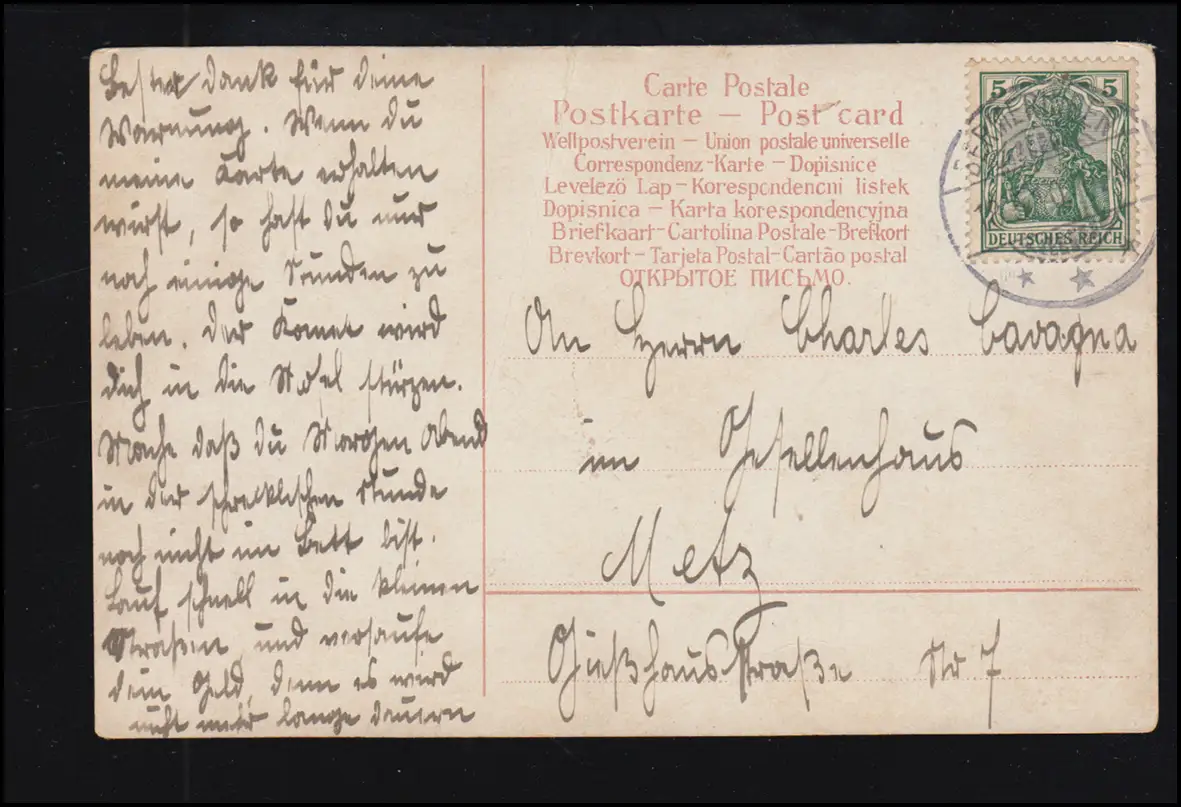 Bester Dank für deine
Warnung. Wenn du
meine Karte erhalten
wirst, so hast du nur
noch einige Stunden zu
leben. Der Komet wird
dich in die Mosel stürzen.
Mache daß du Morgen Abend
in der schrecklichen Stunde
noch nicht im Bett bist.
Lauf schnell in die kleinen
Straßen und versaufe
dein Geld, denn es wird
nicht mehr lange dauern
Carte Postale
Postkarte — Post card
Weltpostverein — Union postale universelle
Correspondenz-Karte — Dopisnice
Levelező Lap — Korespondencni listek
Dopisnica — Karta korespondencyjna
Briefkaart - Cartolina Postale - Brefkort
Brevkort — Tarjeta Postal - Cartão postal
ОТКРЫТОЕ ПИСЬМО.
5 5
DEUTSCHES REICH
An Herrn Charles Cavagna
im Gesellenhaus
Metz
Gießhausstraße Nr 7